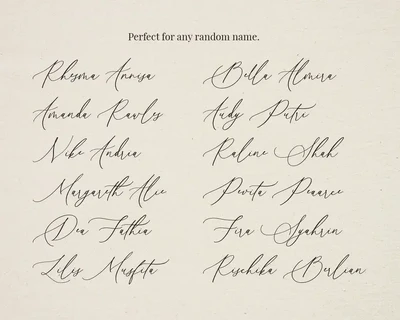 Perfect for any random name.
Rhesma Annisa
Bella Almira
Amanda Rawles
Audy Putri
Nike Andria
Raline Shah
Margareth Alie
Pevita Pearce
Dea Fathia
Fira Syahrin
Liles Musfita
Rischika Berlian